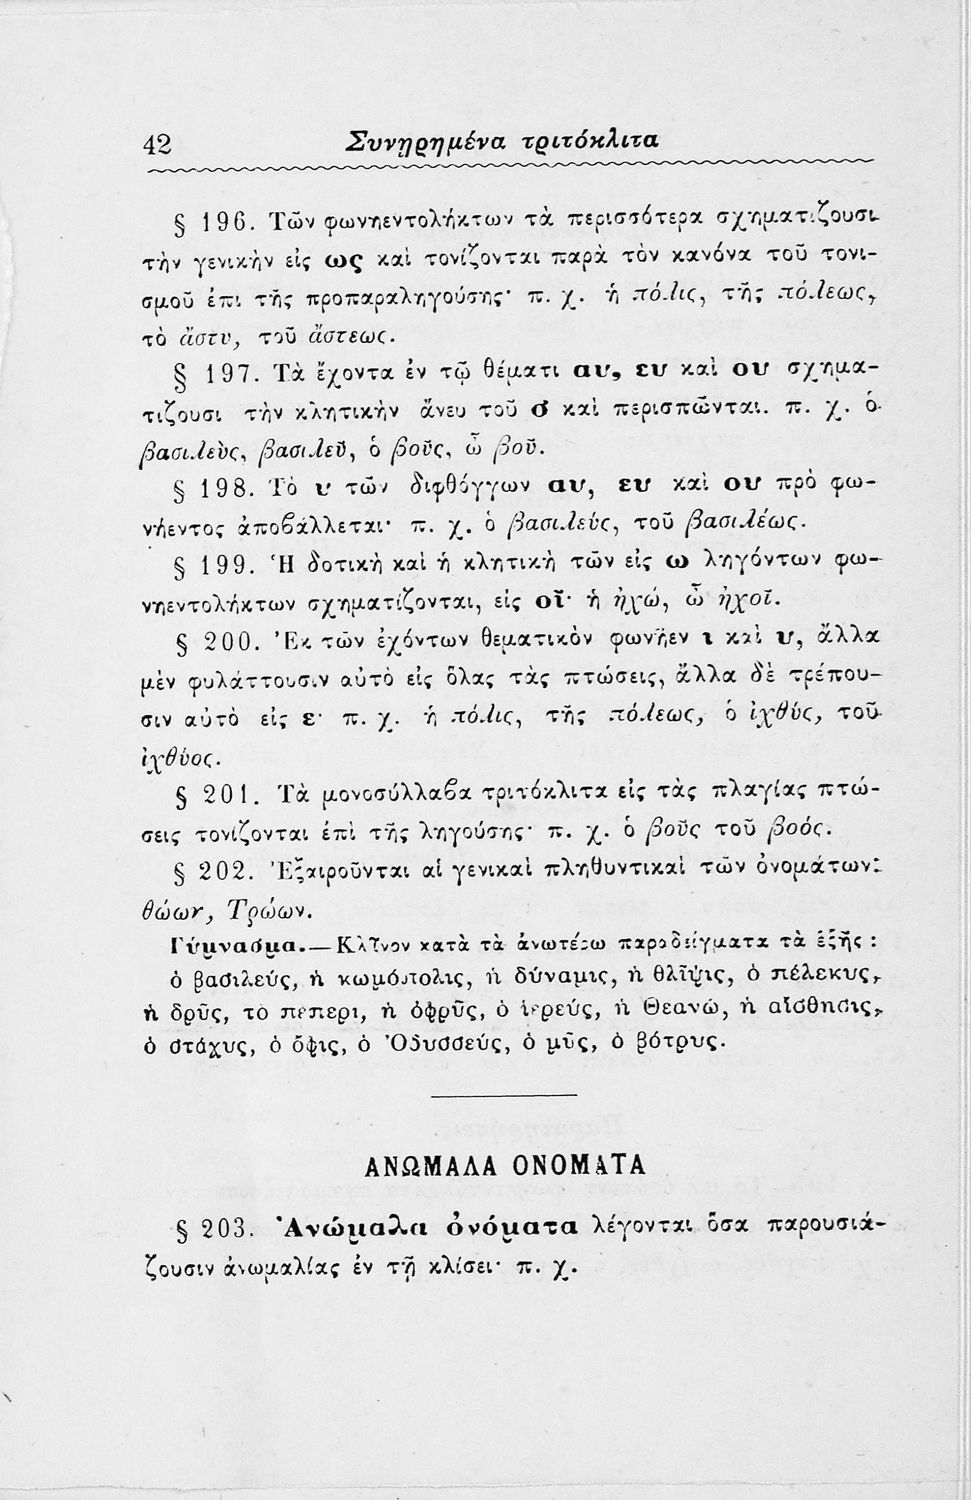 42 Συνῃρημένα τριτόκλιτα
§ 196. Τῶν φωνηεντολήκτων τὰ περισσότερα σχηματίζουσι
τὴν γενικὴν εἰς ως καὶ τονίζονται παρὰ τὸν κανόνα τοῦ τονι-
σμοῦ ἐπὶ τῆς προπαραληγούσης· π. χ. ἡ πόλις, τῆς πόλεως,
τὸ ἄστυ, τοῦ ἄστεως.
§ 197. Τὰ ἔχοντα ἐν τῷ θέματι αυ, ευ καὶ ου σχημα-
τίζουσι τὴν κλητικὴν ἄνευ τοῦ σ καὶ περισπῶνται. π. χ. ὁ
βασιλεὺς, βασιλεῦ, ὁ βοῦς, ὦ βοῦ.
§ 198. Τὸ υ τῶν διφθόγγων αυ, ευ καὶ ου πρὸ φω-
νήεντος ἀποβάλλεται· π. χ. ὁ βασιλεύς, τοῦ βασιλέως.
§ 199. Ἡ δοτικὴ καὶ ἡ κλητικὴ τῶν εἰς ω ληγόντων φω-
νηεντολήκτων σχηματίζονται, εἰς οῖ· ἡ ἠχώ, ὦ ἠχοῖ.
§ 200. Ἐκ τῶν ἐχόντων θεματικὸν φωνῆεν ι καὶ υ, ἄλλα
μὲν φυλάττουσιν αὐτὸ εἰς ὅλας τὰς πτώσεις, ἄλλα δὲ τρέπου-
σιν αὐτὸ εἰς ε· π. χ. ἡ πόλις, τῆς πόλεως, ὁ ἰχθύς, τοῦ
ἰχθύος.
§ 201. Τὰ μονοσύλλαβα τριτόκλιτα εἰς τὰς πλαγίας πτώ-
σεις τονίζονται ἐπὶ τῆς ληγούσης· π. χ. ὁ βοῦς τοῦ βοός.
§ 202. Ἐξαιροῦνται αἱ γενικαὶ πληθυντικαὶ τῶν ὀνομάτων:
θώων, Τρώων.
Γύμνασμα.—Κλῖνον κατὰ τὰ ἀνωτέρω παραδείγματα τὰ ἑξῆς :
ὁ βασιλεύς, ἡ κωμόπολις, ἡ δύναμις, ἡ θλῖψις, ὁ πέλεκυς,
ἡ δρῦς, τὸ πέπερι, ἡ ὀφρῦς, ὁ ἱερεύς, ἡ Θεανώ, ἡ αἴσθησις,
ὁ στάχυς, ὁ ὄφις, ὁ Ὀδυσσεύς, ὁ μῦς, ὁ βότρυς.
ΑΝΩΜΑΛΑ ΟΝΟΜΑΤΑ
§ 203. Ἀνώμαλα ὀνόματα λέγονται ὅσα παρουσιά-
ζουσιν ἀνωμαλίας ἐν τῇ κλίσει· π. χ.